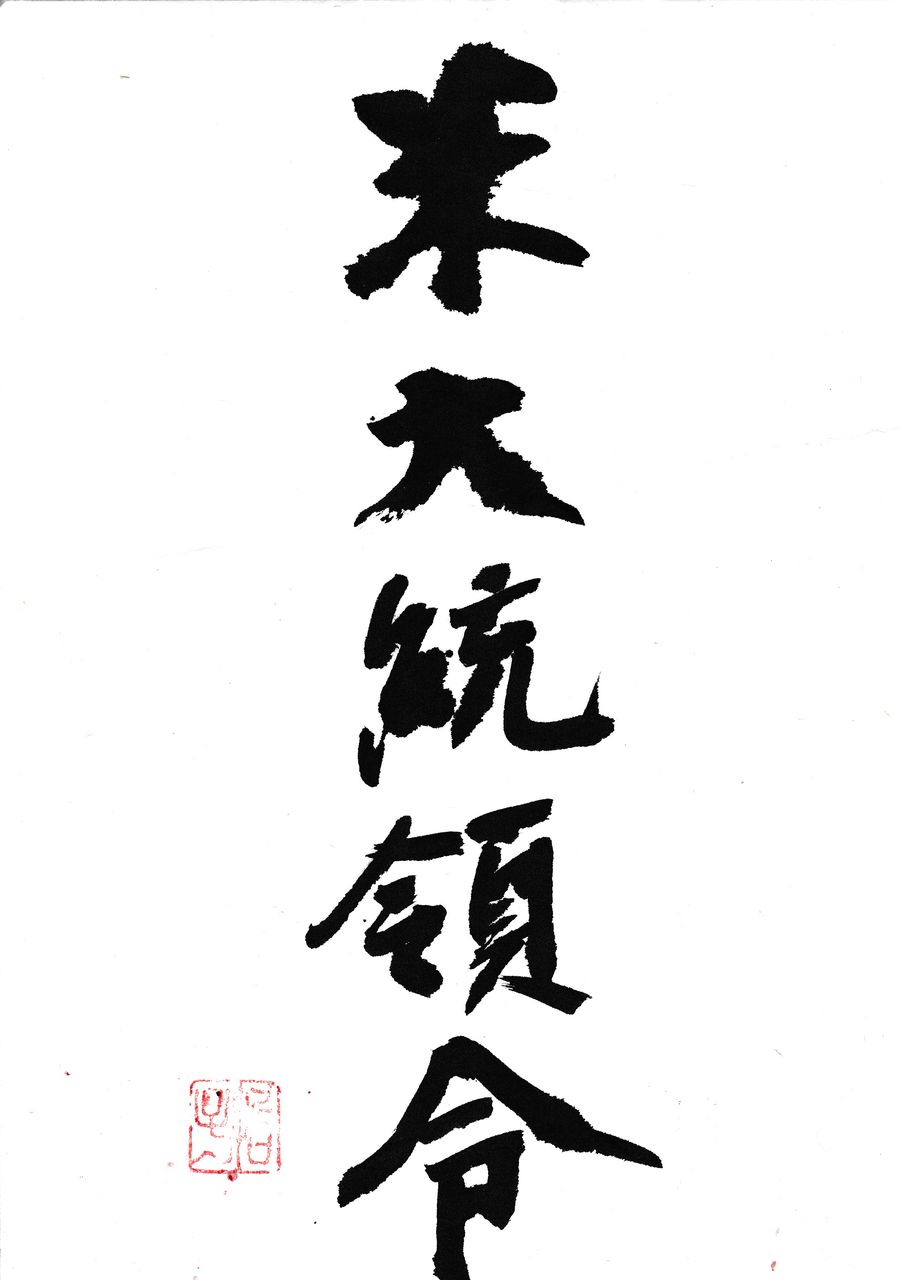 米大統領令